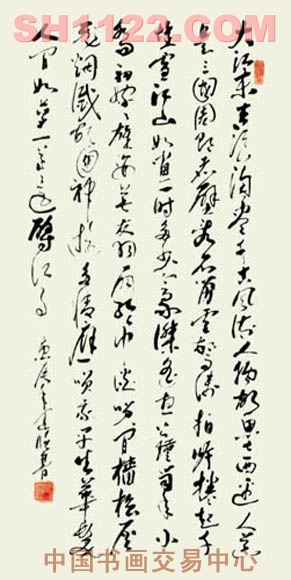 SH1122.COM
大江東去浪淘盡千古風流人物故壘西邊人道
是三國周郎赤壁亂石崩雲驚濤拍岸捲起千
堆雪江山如畫一時多少豪傑遙想公瑾當年小
喬初嫁了雄姿英發羽扇綸巾談笑間檣櫓灰
飛煙滅故國神遊多情應笑我早生華髮
人間如夢一尊還酹江月 庚辰年書
中国书画交易中心